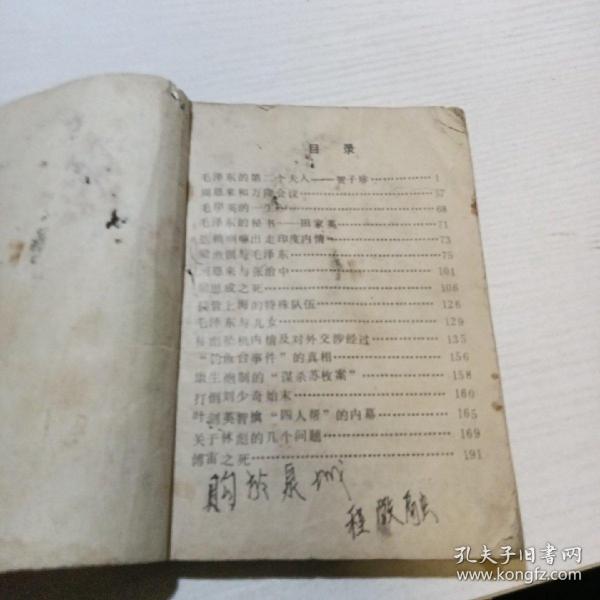 目 录
毛泽东的第二个夫人——贺子珍……1
周恩来和万隆会议……57
毛岸英的一生……68
毛泽东的秘书——田家英……71
达赖喇嘛出走印度内情……73
梁漱溟与毛泽东……75
周恩来与张治中……101
梁思成之死……106
接管上海的特殊队伍……126
毛泽东与儿女……129
林彪坠机内情及对外交涉经过……135
“钓鱼台事件”的真相……156
康生炮制的“谋杀苏枚案”……158
打倒刘少奇始末……160
叶剑英智擒“四人帮”的内幕……165
关于林彪的几个问题……169
傅雷之死……191
购於泉城
程
孔夫子旧书网
www.kongfz.com